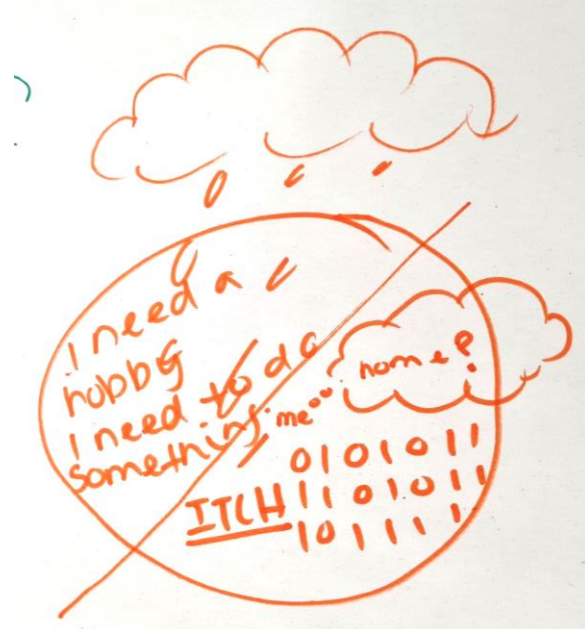 i need a
hobby
I need to do
something.
me
home?
0101011
ITCH 1101011
101111